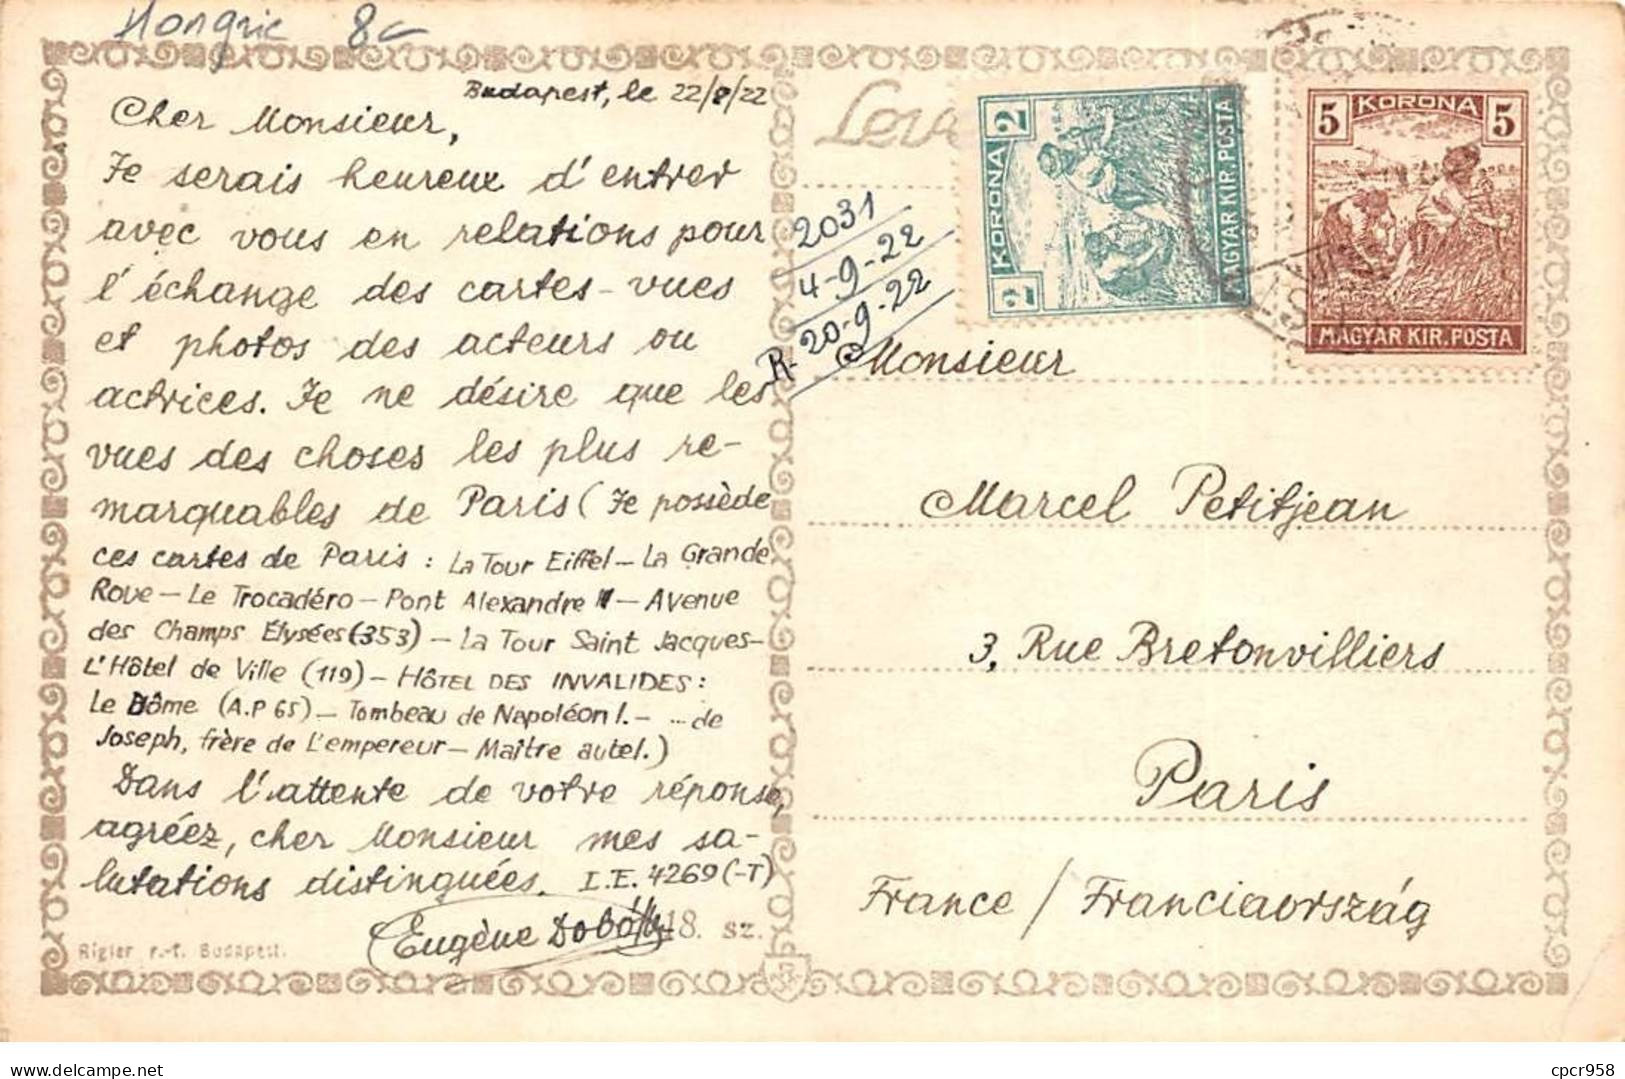 Hongrie 8c
Budapest, le 22/8/22
Cher Monsieur,
Je serais heureux d'entrer
avec vous en relations pour
l'échange des cartes-vues
et photos des acteurs ou
actrices. Je ne désire que les
vues des choses les plus re-
marquables de Paris (Je possède
ces cartes de Paris : La Tour Eiffel – La Grande
Roue – Le Trocadéro – Pont Alexandre III – Avenue
des Champs Élysées (353) – La Tour Saint Jacques –
L'Hôtel de Ville (119) – HÔTEL DES INVALIDES :
Le Dôme (A.P 65) – Tombeau de Napoléon I. – ... de
Joseph, frère de l'empereur – Maître autel.)
Dans l'attente de votre réponse,
agréez, cher Monsieur mes sa-
lutations distinguées. I.E. 4269 (-T)
Eugène
18. sz.
Rigler r.-t. Budapest.
Leve
2 KORONA 2
MAGYAR KIR. POSTA
5 KORONA 5
MAGYAR KIR. POSTA
2031
4-9-22
R- 20-9-22
Monsieur
Marcel Petitjean
3, Rue Bretonvilliers
Paris
France / Franciaország
Delcampe.net
cpcr958